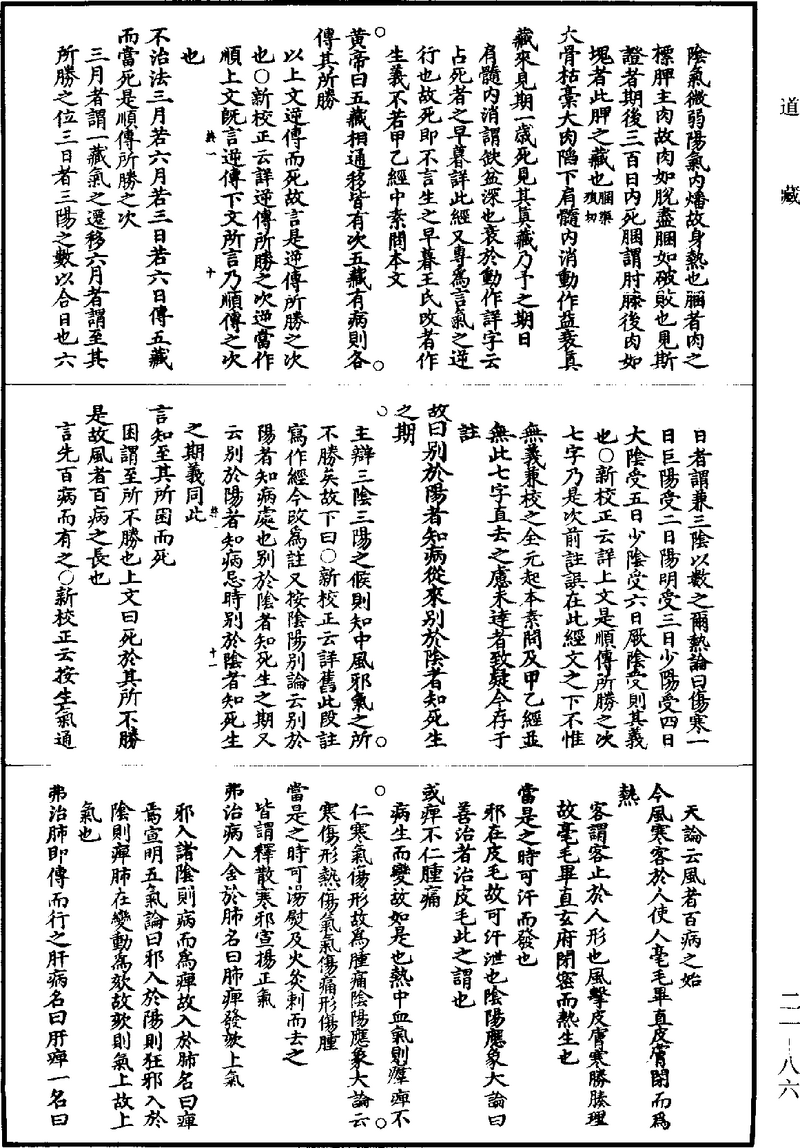 道藏
陰氣微弱陽氣內燔故身熱也䐃者肉之
標脾主肉故肉如脫盡䐃如破敗也見斯
證者期後三百日內死䐃謂肘膝後肉如
塊者此脾之藏也䐃渠殞切
大骨枯槀大肉陷下肩髓內消動作益衰真
藏來見期一歲死見其真藏乃予之期日
肩髓內消謂缺盆深也衰於動作詳字云
占死者之早暮詳此經又專為言氣之逆
行也故死即不言生之早暮王氏改者作
生義不若甲乙經中素問本文
黃帝曰五藏相通移皆有次五藏有病則各
傳其所勝
以上文逆傳而死故言是逆傳所勝之次
也○新校正云詳逆傳所勝之次逆當作
順上文既言逆傳下文所言乃順傳之次
也
不治法三月若六月若三日若六日傳五藏
而當死是順傳所勝之次
三月者謂一藏氣之遷移六月者謂至其
所勝之位三日者三陽之數以合日也六
日者謂兼三陰以數之爾熱論曰傷寒一
日巨陽受二日陽明受三日少陽受四日
大陰受五日少陰受六日厥陰受則其義
也○新校正云詳上文是順傳所勝之次
七字乃是次前註誤在此經文之下不惟
無義兼校之全元起本素問及甲乙經並
無此七字直去之慮未達者致疑今存于
註
故曰別於陽者知病從來別於陰者知死生
之期
主辯三陰三陽之候則知中風邪氣之所
不勝矣故下曰○新校正云詳舊此段註
寫作經今改為註又按陰陽別論云別於
陽者知病處也別於陰者知死生之期又
云別於陽者知病忌時別於陰者知死生
之期義同此
言知至其所困而死
困謂至所不勝也上文曰死於其所不勝
是故風者百病之長也
言先百病而有之○新校正云按生氣通
天論云風者百病之始
今風寒客於人使人毫毛畢直皮膚閉而為
熱
客謂客止於人形也風擊皮膚寒勝腠理
故毫毛畢直玄府閉密而熱生也
當是之時可汗而發也
邪在皮毛故可汗泄也陰陽應象大論曰
善治者治皮毛此之謂也
或痺不仁腫痛
病生而變故如是也熱中血氣則㾖痺不
仁寒氣傷形故為腫痛陰陽應象大論云
寒傷形熱傷氣氣傷痛形傷腫
當是之時可湯熨及火灸刺而去之
皆謂釋散寒邪宣揚正氣
弗治病入舍於肺名曰肺痺發欬上氣
邪入諸陰則病而為痺故入於肺名曰痺
焉宣明五氣論曰邪入於陽則狂邪入於
陰則痺肺在變動為欬故欬則氣上故上
氣也
弗治肺即傳而行之肝病名曰肝痺一名曰
二一-八六